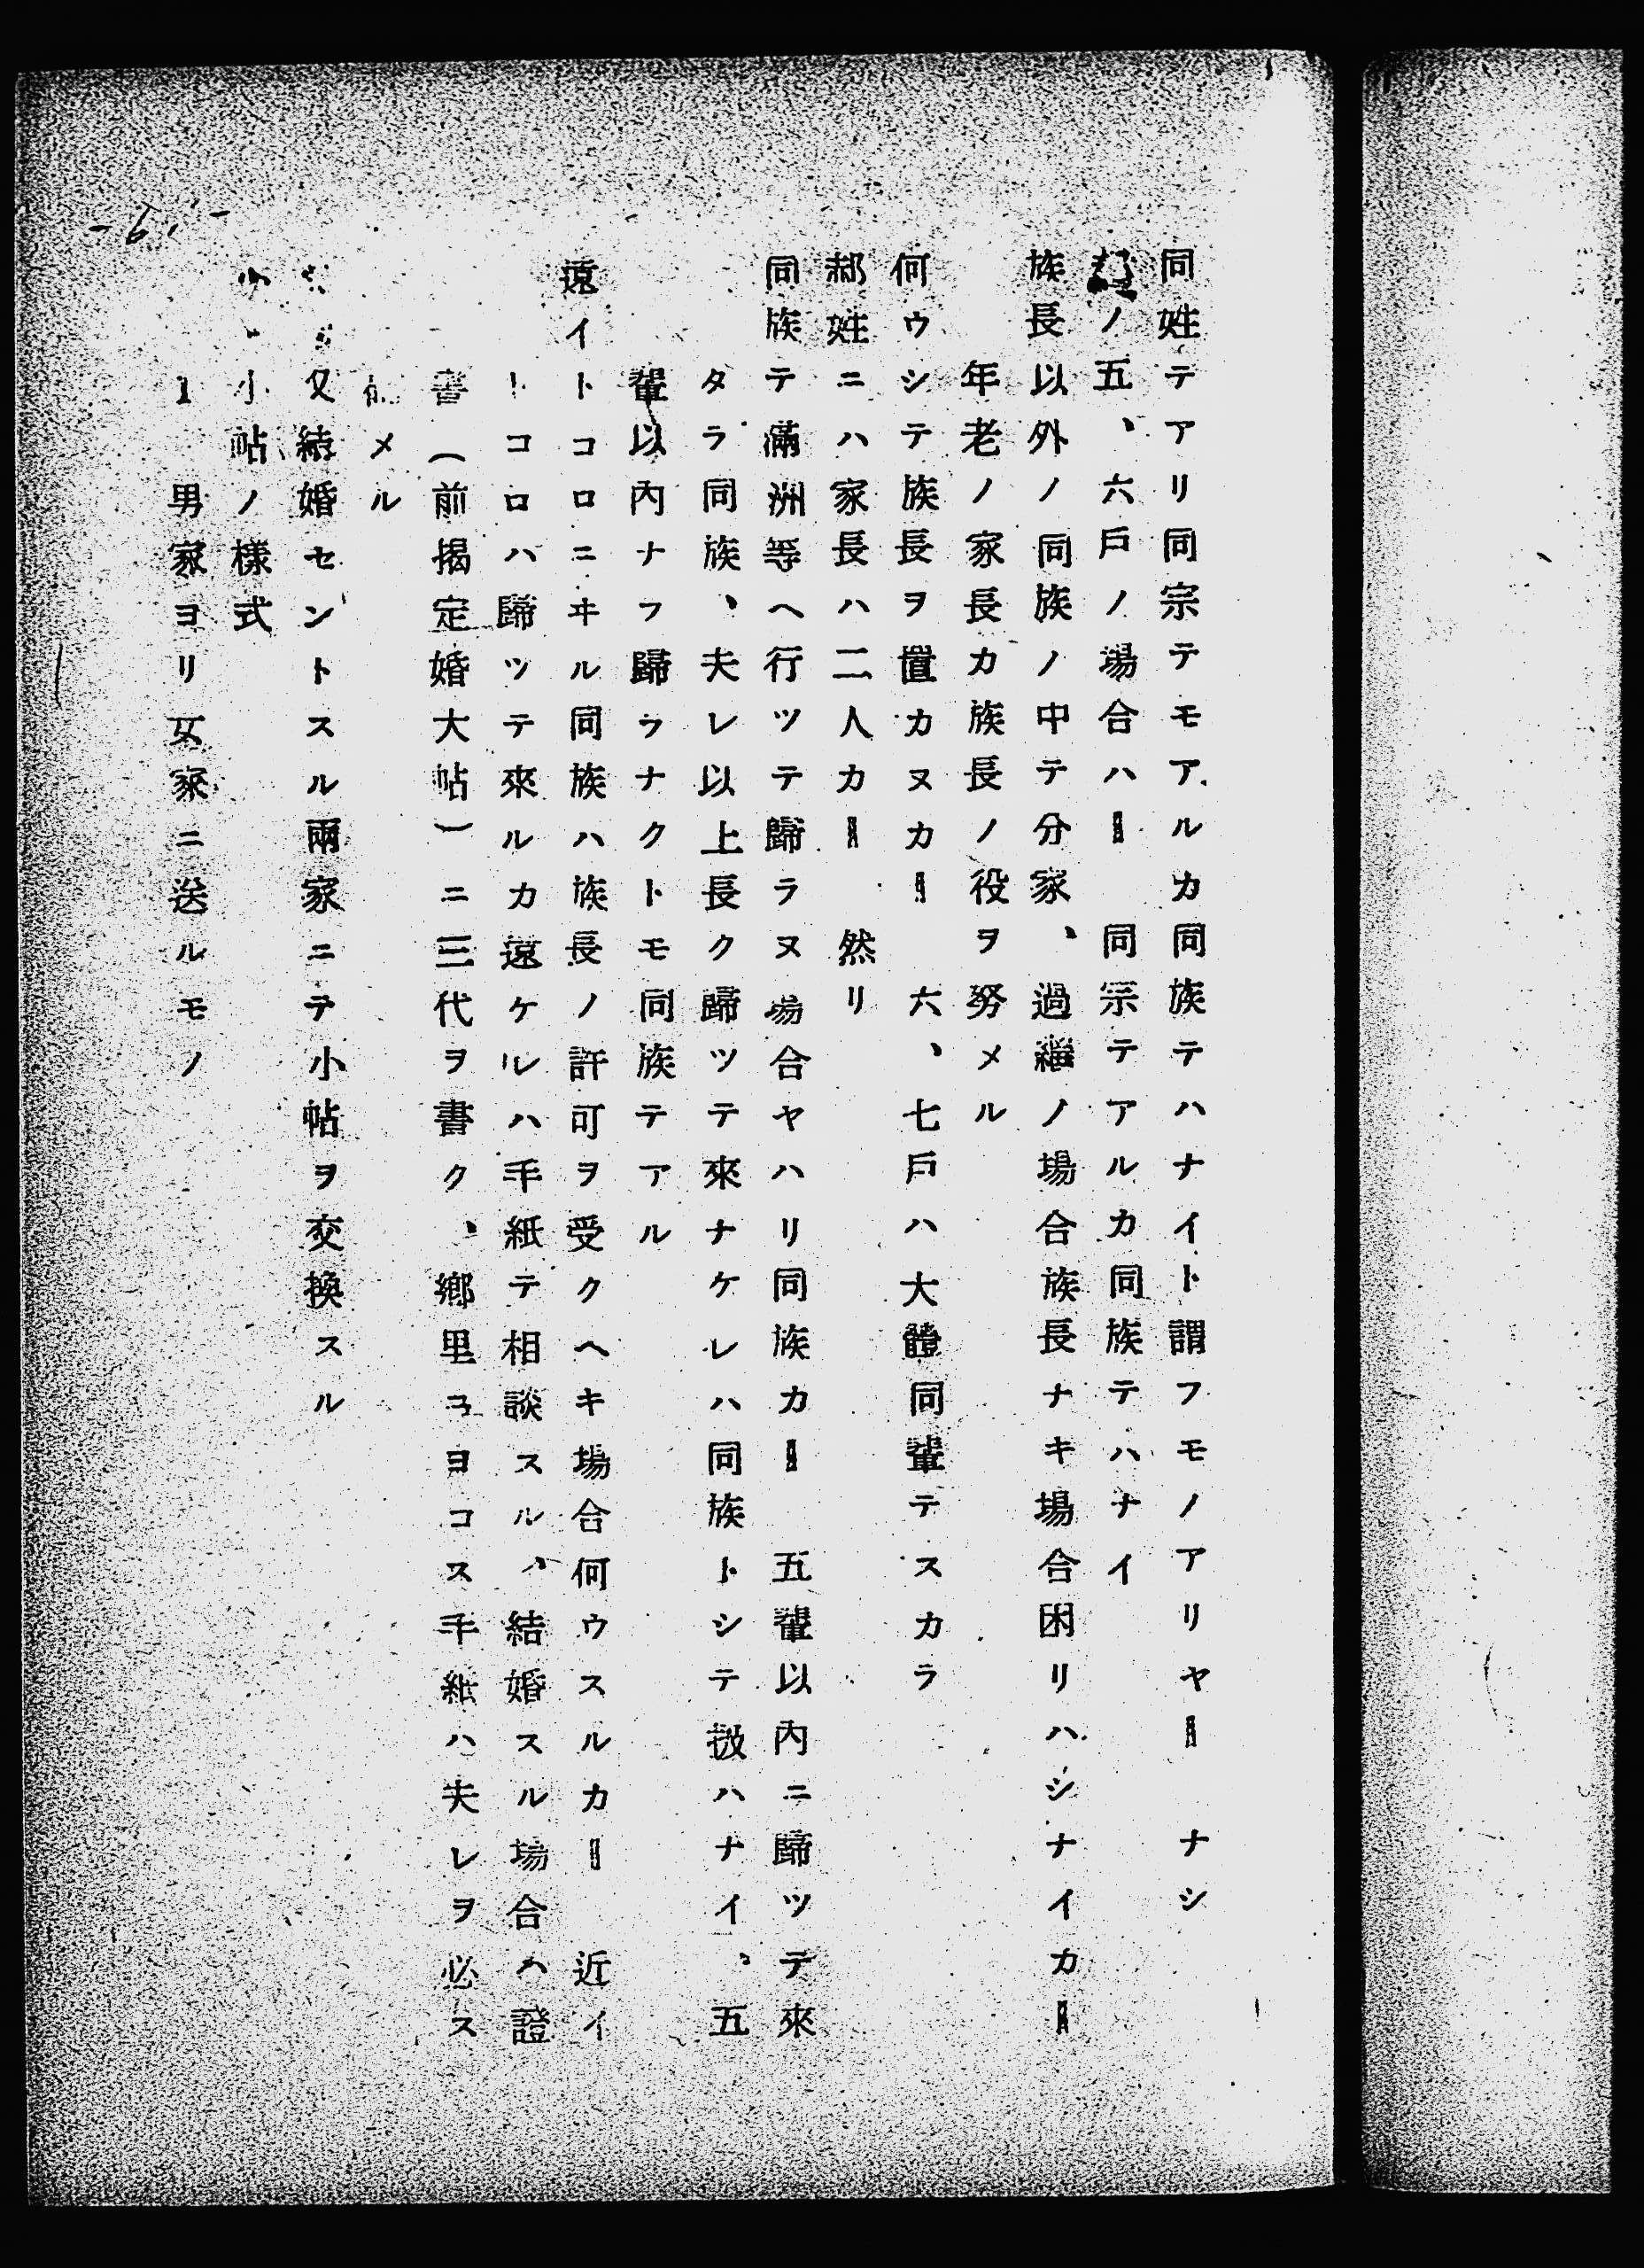 同姓テアリ同宗テモアルカ同族テハナイト謂フモノアリヤー　ナシ
ノ五、六戶ノ場合ハー　同宗テアルカ同族テハナイ
族長以外ノ同族ノ中テ分家、過繼ノ場合族長ナキ場合困リハシナイカー
年老ノ家長カ族長ノ役ヲ努メル
何ウシテ族長ヲ置カヌカー　六、七戶ハ大體同輩テスカラ
郝姓ニハ家長ハ二人カー　然リ
同族テ滿洲等ヘ行ツテ歸ラヌ場合ヤハリ同族カー　五輩以內ニ歸ツテ來
タラ同族、夫レ以上長ク歸ツテ來ナケレハ同族トシテ扱ハナイ、五
輩以內ナフ歸ラナクトモ同族テアル
遠イトコロニヰル同族ハ族長ノ許可ヲ受クヘキ場合何ウスルカー　近イ
トコロハ歸ツテ來ルカ遠ケルハ手紙テ相談スル、結婚スル場合ハ證
書(前揭定婚大帖)ニ三代ヲ書ク、鄕里ヨコス手紙ハ夫レヲ必ス
メル
又結婚セントスル兩家ニテ小帖ヲ交換スル
小帖ノ樣式
1　男家ヨリ女家ニ送ルモノ
-6.-